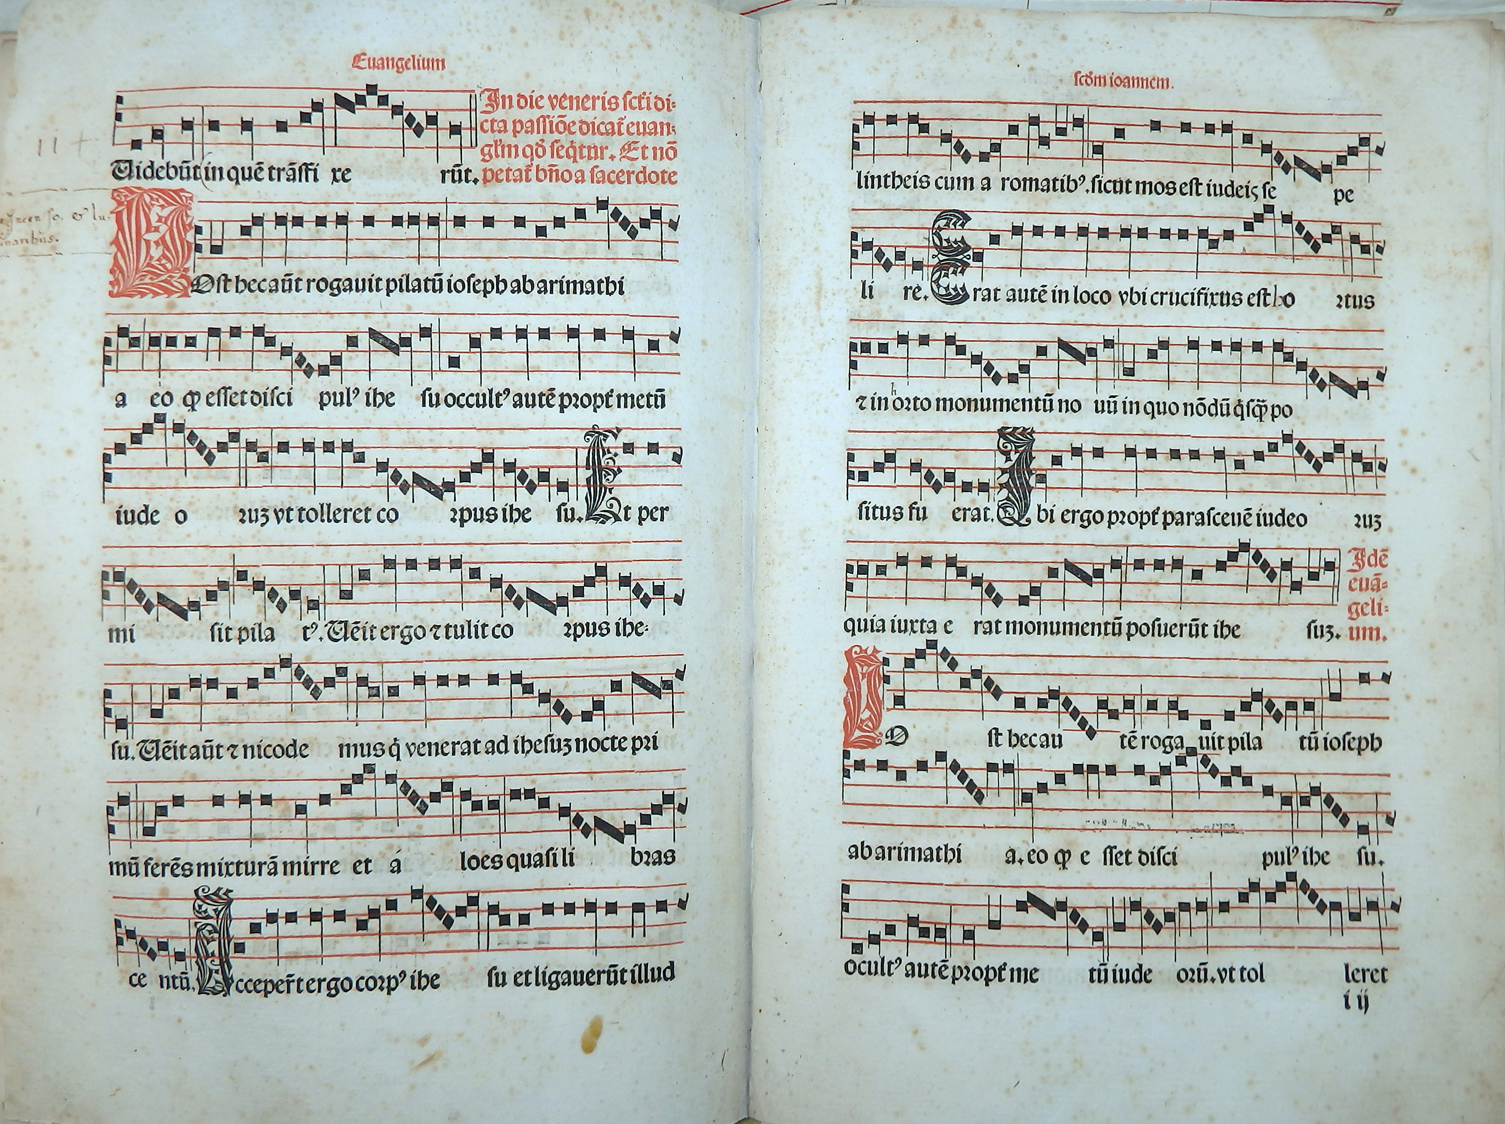 Euangelium
Uidebūt in quē trāſſi xe rūt.
In die veneris ſctī di-
cta paſſiōe dicat̄ euan-
glm̄ qō ſeqt̄ur. Et nō
petat̄ bn̄o a ſacerdote
Poſt hec aūt rogauit pilatū ioſeph ab arimathi
a eo ꝙ eſſet diſci pulꝰ ihe ſu occultꝰ autē propt̄ metū
iude o ꝛuꝫ vt tolleret co ꝛpus ihe ſu. Et per
mi ſit pila tꝰ. Uēit ergo ⁊ tulit co ꝛpus ihe-
ſu. Uēit aūt ⁊ nicode mus q̇ venerat ad iheſuꝫ nocte pri
mū ferēs mixturā mirre et á loes quaſi li bras
ce ntū. Acceper̄t ergo coꝛpꝰ ihe ſu et ligauerūt illud
ſcōm ioannem.
lintheis cum a romatibꝰ. ſicut mos eſt iudeis ſe pe
li re. Erat autē in loco vbi crucifixus eſt ho ꝛtus
⁊ in oꝛto monumentū no uū in quo nōdū q̇ſꝙ̄ po
ſitus fu erat. Ibi ergo propt̄ paraſceuē iudeo ꝛuꝫ
quia iuxta e rat monumentū poſuerūt ihe ſuꝫ.
Idē
euā-
geli-
um.
Po ſt hec au tē roga uit pila tū ioſeph
ab arimathi a. eo ꝙ e ſſet diſci pulꝰ ihe ſu.
ocultꝰ autē propt̄ me tū iude oꝛū. vt tol leret
i ij